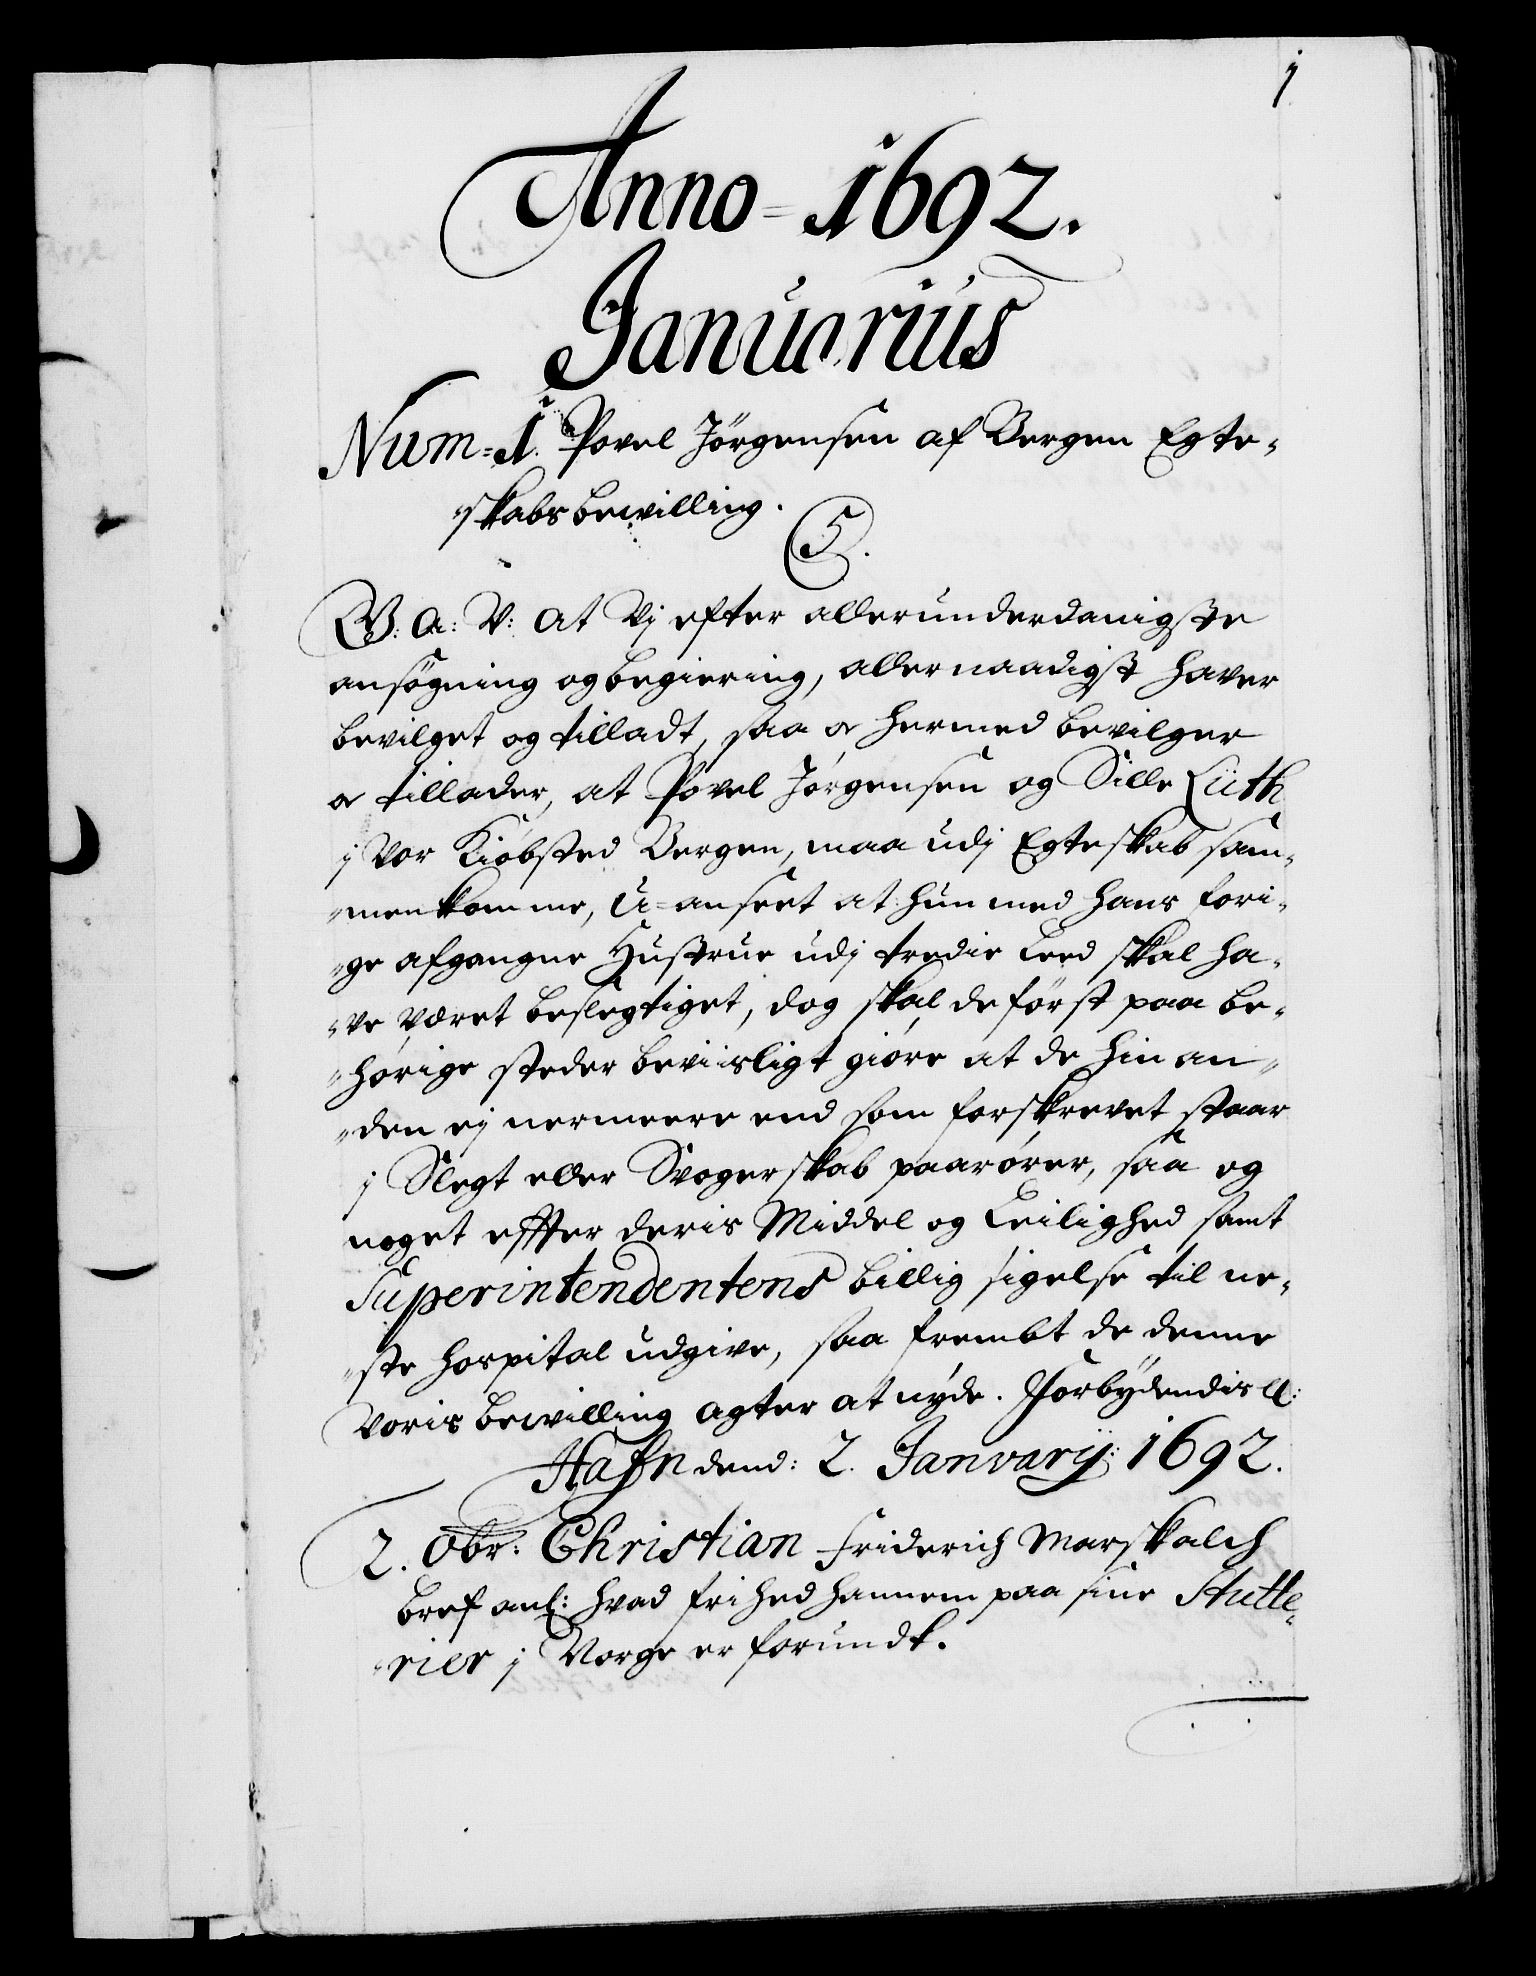 1
Anno = 1692.
Januarius
Num = 1. Povel Jörgensen af Bergen Egte-
-skabs bewilling.
5.
W: A: V: At Vj efter allerunderdanigste
ansögning og begiering, allernaadigst haver
bevilget og tilladt, saa oc hermed bevilger
oc tillader, at Povel Jörgensen og Sille Lüth
j vor Kiöbsted Bergen, maa udj Egteskab sam-
-men komme, U=anseet at hun med hans fori-
-ge afgangne Hustrue udj tredie Leed skal ha-
-ve været beslegtiget, dog skal de först paa be-
-hörige steder beviisligt giöre at de hin an-
-den ej nermeere end som forskrevet staar
j Slegt eller Svogerskab paarörer, saa og
noget effter deris Middel og Leilighed samt
Superintendentens billig sigelse til ne-
-ste Hospital udgive, saa frembt de denne
Voris bewilling agter at nÿde. Forbÿdendis
Hafn dend: 2. Janvarÿ: 1692.
2. Obr: Christian Friderich Marskalch
bref anl: hvad frihed hannem paa sine Stutte-
-rier j Norge er forundt.